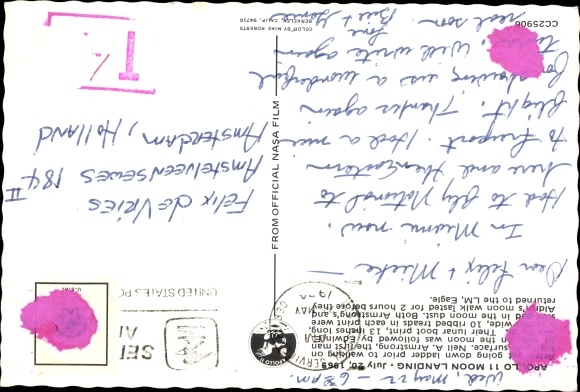 Wed. May 22 - 6
APOLLO 11 MOON LANDING - July 20, 1969
going down ladder prior to walking on
surface. Neil A. Armstrong, the first man
on the moon was followed by Edwin E.
Their lunar boot print, 13 inches long,
wide, 10 ribbed treads in each print were
in the moon dust. Both Armstrong's and
Aldrin's moon walk lasted 2 hours before they
returned to the LM, Eagle.
Dear Felix & Mieke —
In Miami now.
Had to fly National to
here and then Eastern
to Freeport. Had a nice
flight. Thanks again
for showing us a wonderful
time. Will write again
real soon.
Love
Bill &
CC25906
COLOR BY MIKE ROBERTS
BERKELEY, CALIF. 94710
FROM OFFICIAL NASA FILM
APOLLO 11
MAY
UNITED STATES PO
SER
Felix de Vries
Amstelveenseweg 184 II
Amsterdam, Holland
T